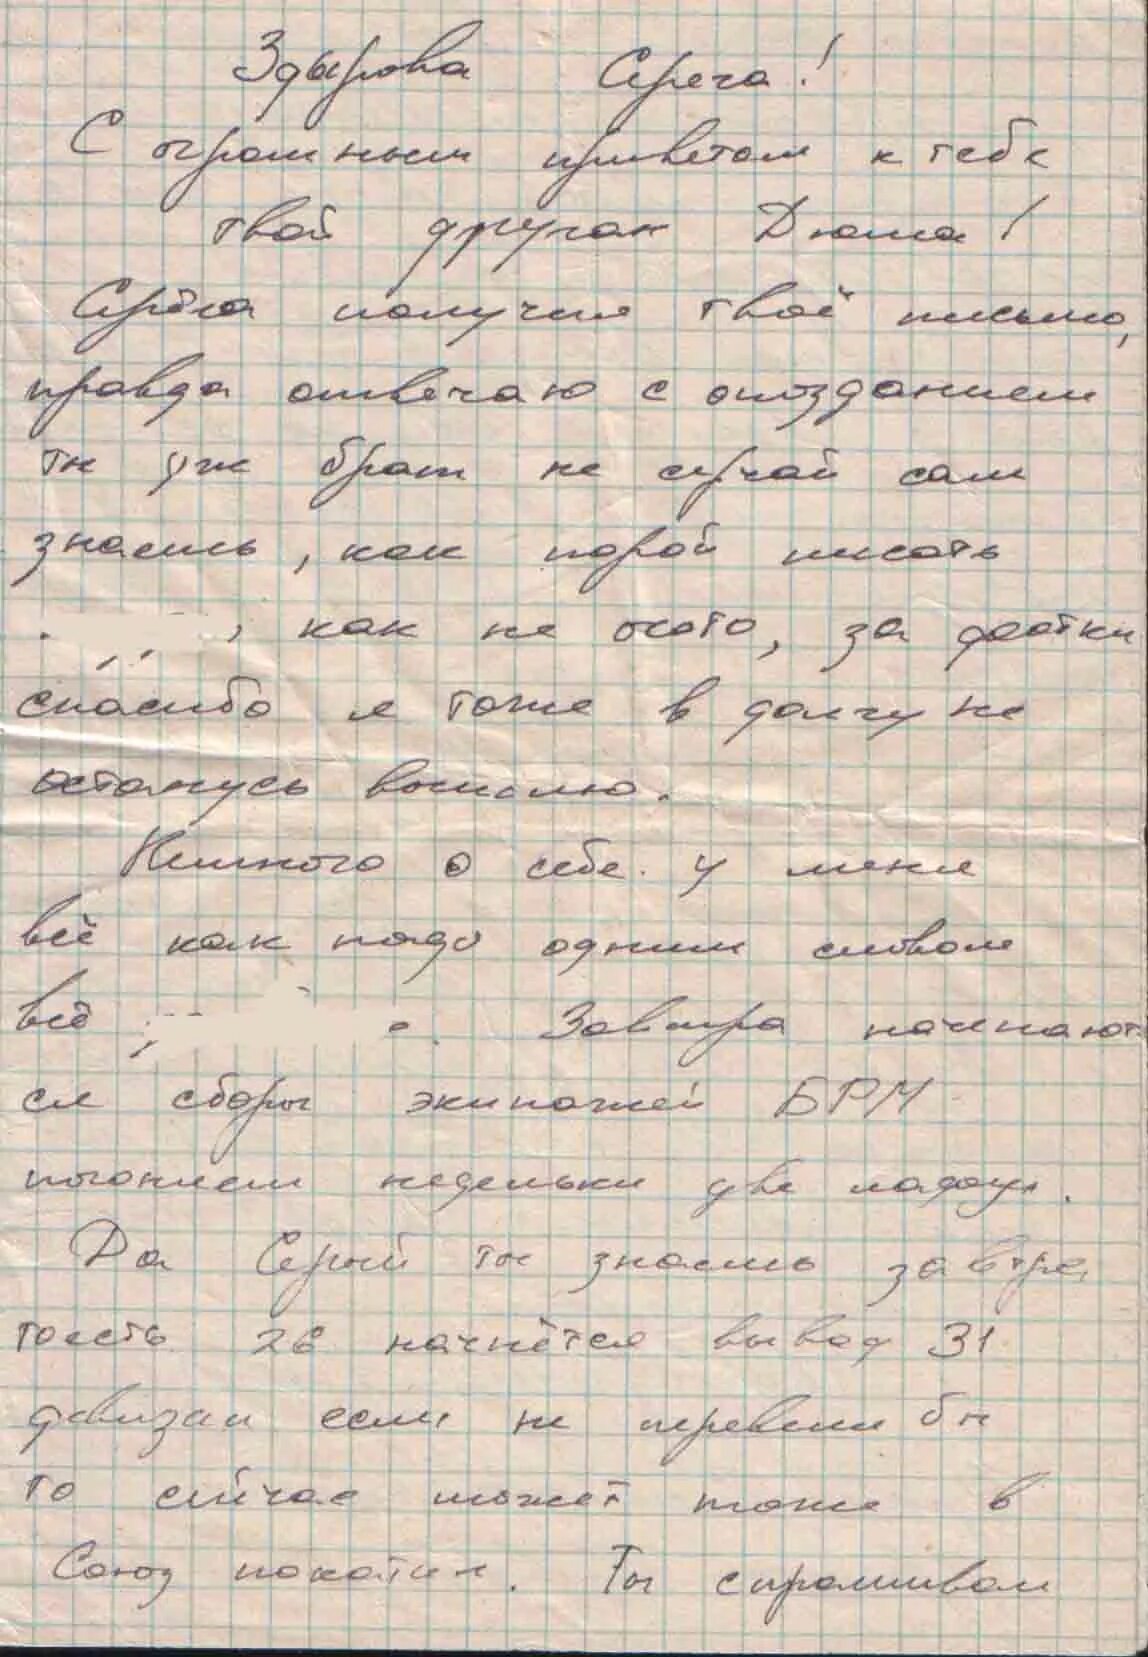 Здырова Серега!
С огромным приветом к тебе
твой другак Дюша!
Серёга получил твоё письмо,
правда отвечаю с опозданием
ты уж брат не серчай сам
знаешь, как порой писать
, как не охота, за фотки
спасибо я тоже в долгу не
останусь вышлю.
Немного о себе. У меня
всё как надо одним словом
всё . Завтра начинают
ся сборы экипажей БРМ
погоняем недельки две
Да Серый ты знаешь завтра
тоесть 26 начнётся вывод 31
дивизии если не перевели бы
то сейчас может тоже в
Союз покатил. Ты спрашивал